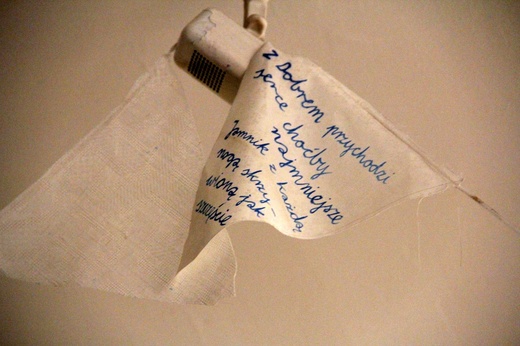 z Dobrem przychodzi
serce choćby
najmniejsze
Jamnik z każdą
nogą skrzy-
wioną jak